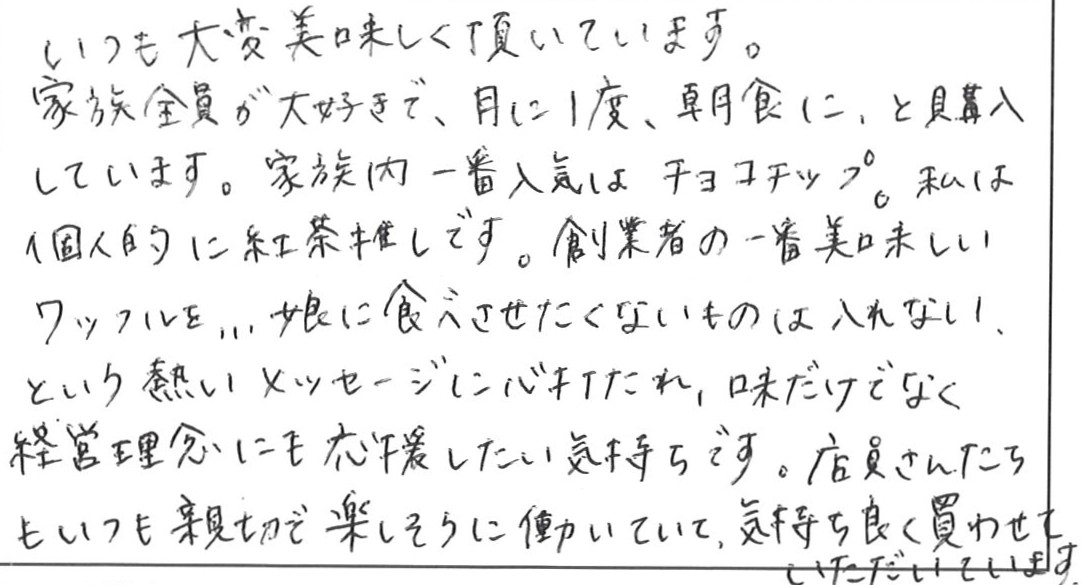 いつも大変美味しく頂いています。
家族全員が大好きで、月に1度、朝食に、と購入
しています。家族内一番人気はチョコチップ。私は
個人的に紅茶推しです。創業者の一番美味しい
ワッフルを...娘に食べさせたくないものは入れない、
という熱いメッセージに心打たれ、味だけでなく
経営理念にも応援したい気持ちです。店員さんたち
もいつも親切で楽しそうに働いていて、気持ち良く買わせて
いただいています